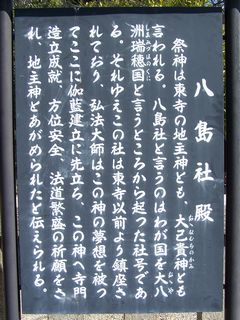 八島社殿
祭神は東寺の地主神とも、大己貴神とも
おおなむちのかみ
言われる。八島社と言うのはわが国を大八
おおや
洲瑞穂国と言うところから起った社号であ
しまみづほのくに
る。それゆえこの社は東寺以前より鎮座さ
れており、弘法大師はこの神の夢想を被っ
てここに伽藍建立に先立ち、この神へ寺門
造立成就、方位安全、法道繁盛の祈願をさ
れ、地主神とあがめられたと伝えられる。